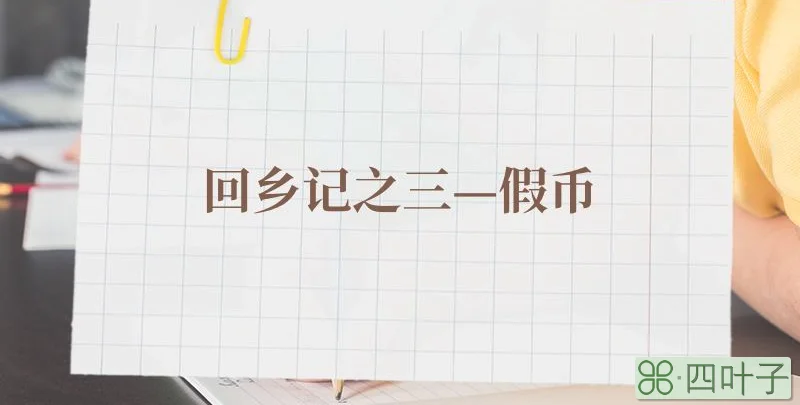 回乡记之三—假币
四叶子